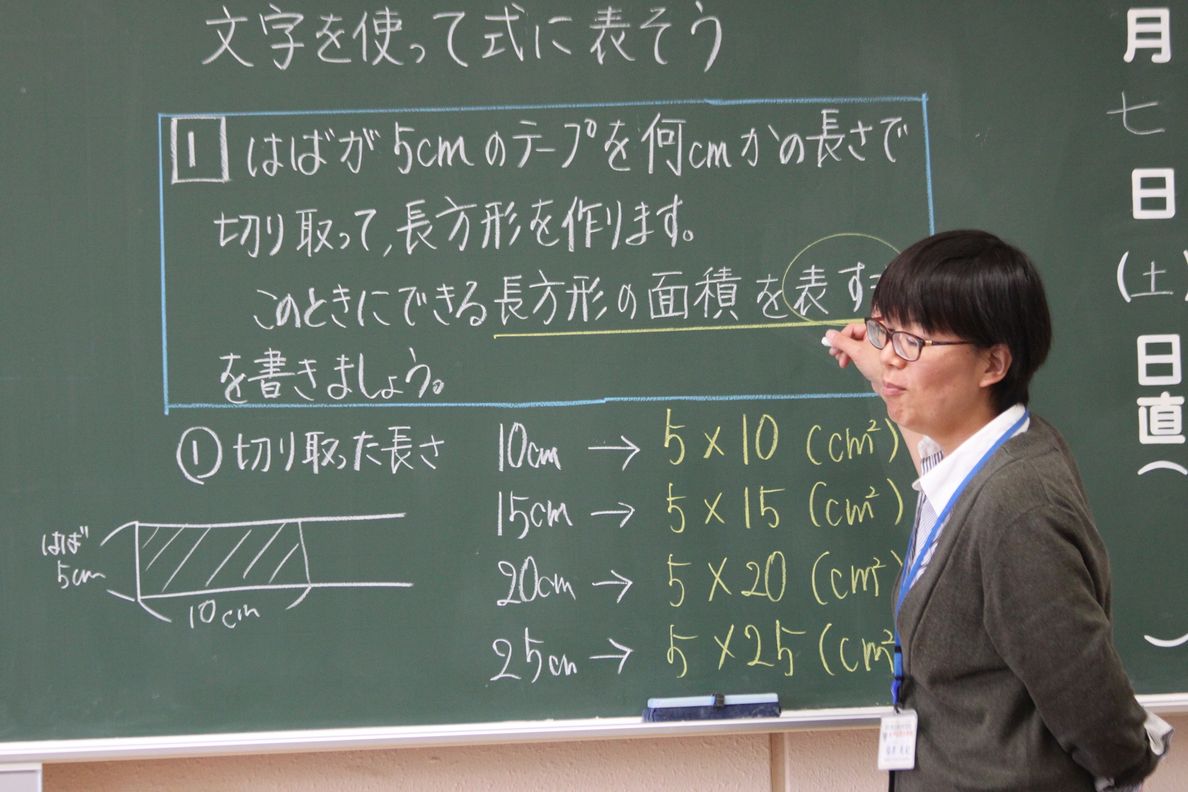 文字を使って式に表そう
1 はばが5cmのテープを何cmかの長さで
切り取って、長方形を作ります。
このときにできる長方形の面積を表す
を書きましょう。
① 切り取った長さ 10cm → 5×10 (cm²)
15cm → 5×15 (cm²)
20cm → 5×20 (cm²
25cm → 5×25 (cm²
はば
5cm
10cm
月
七
日
(土)
日直
(
)